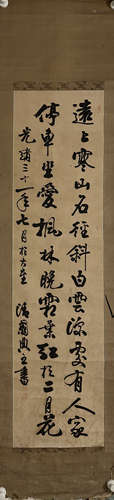 遠上寒山石徑斜白雲深處有人家
停車坐愛楓林晚霜葉紅於二月花
光緒三十一年七月於大
書